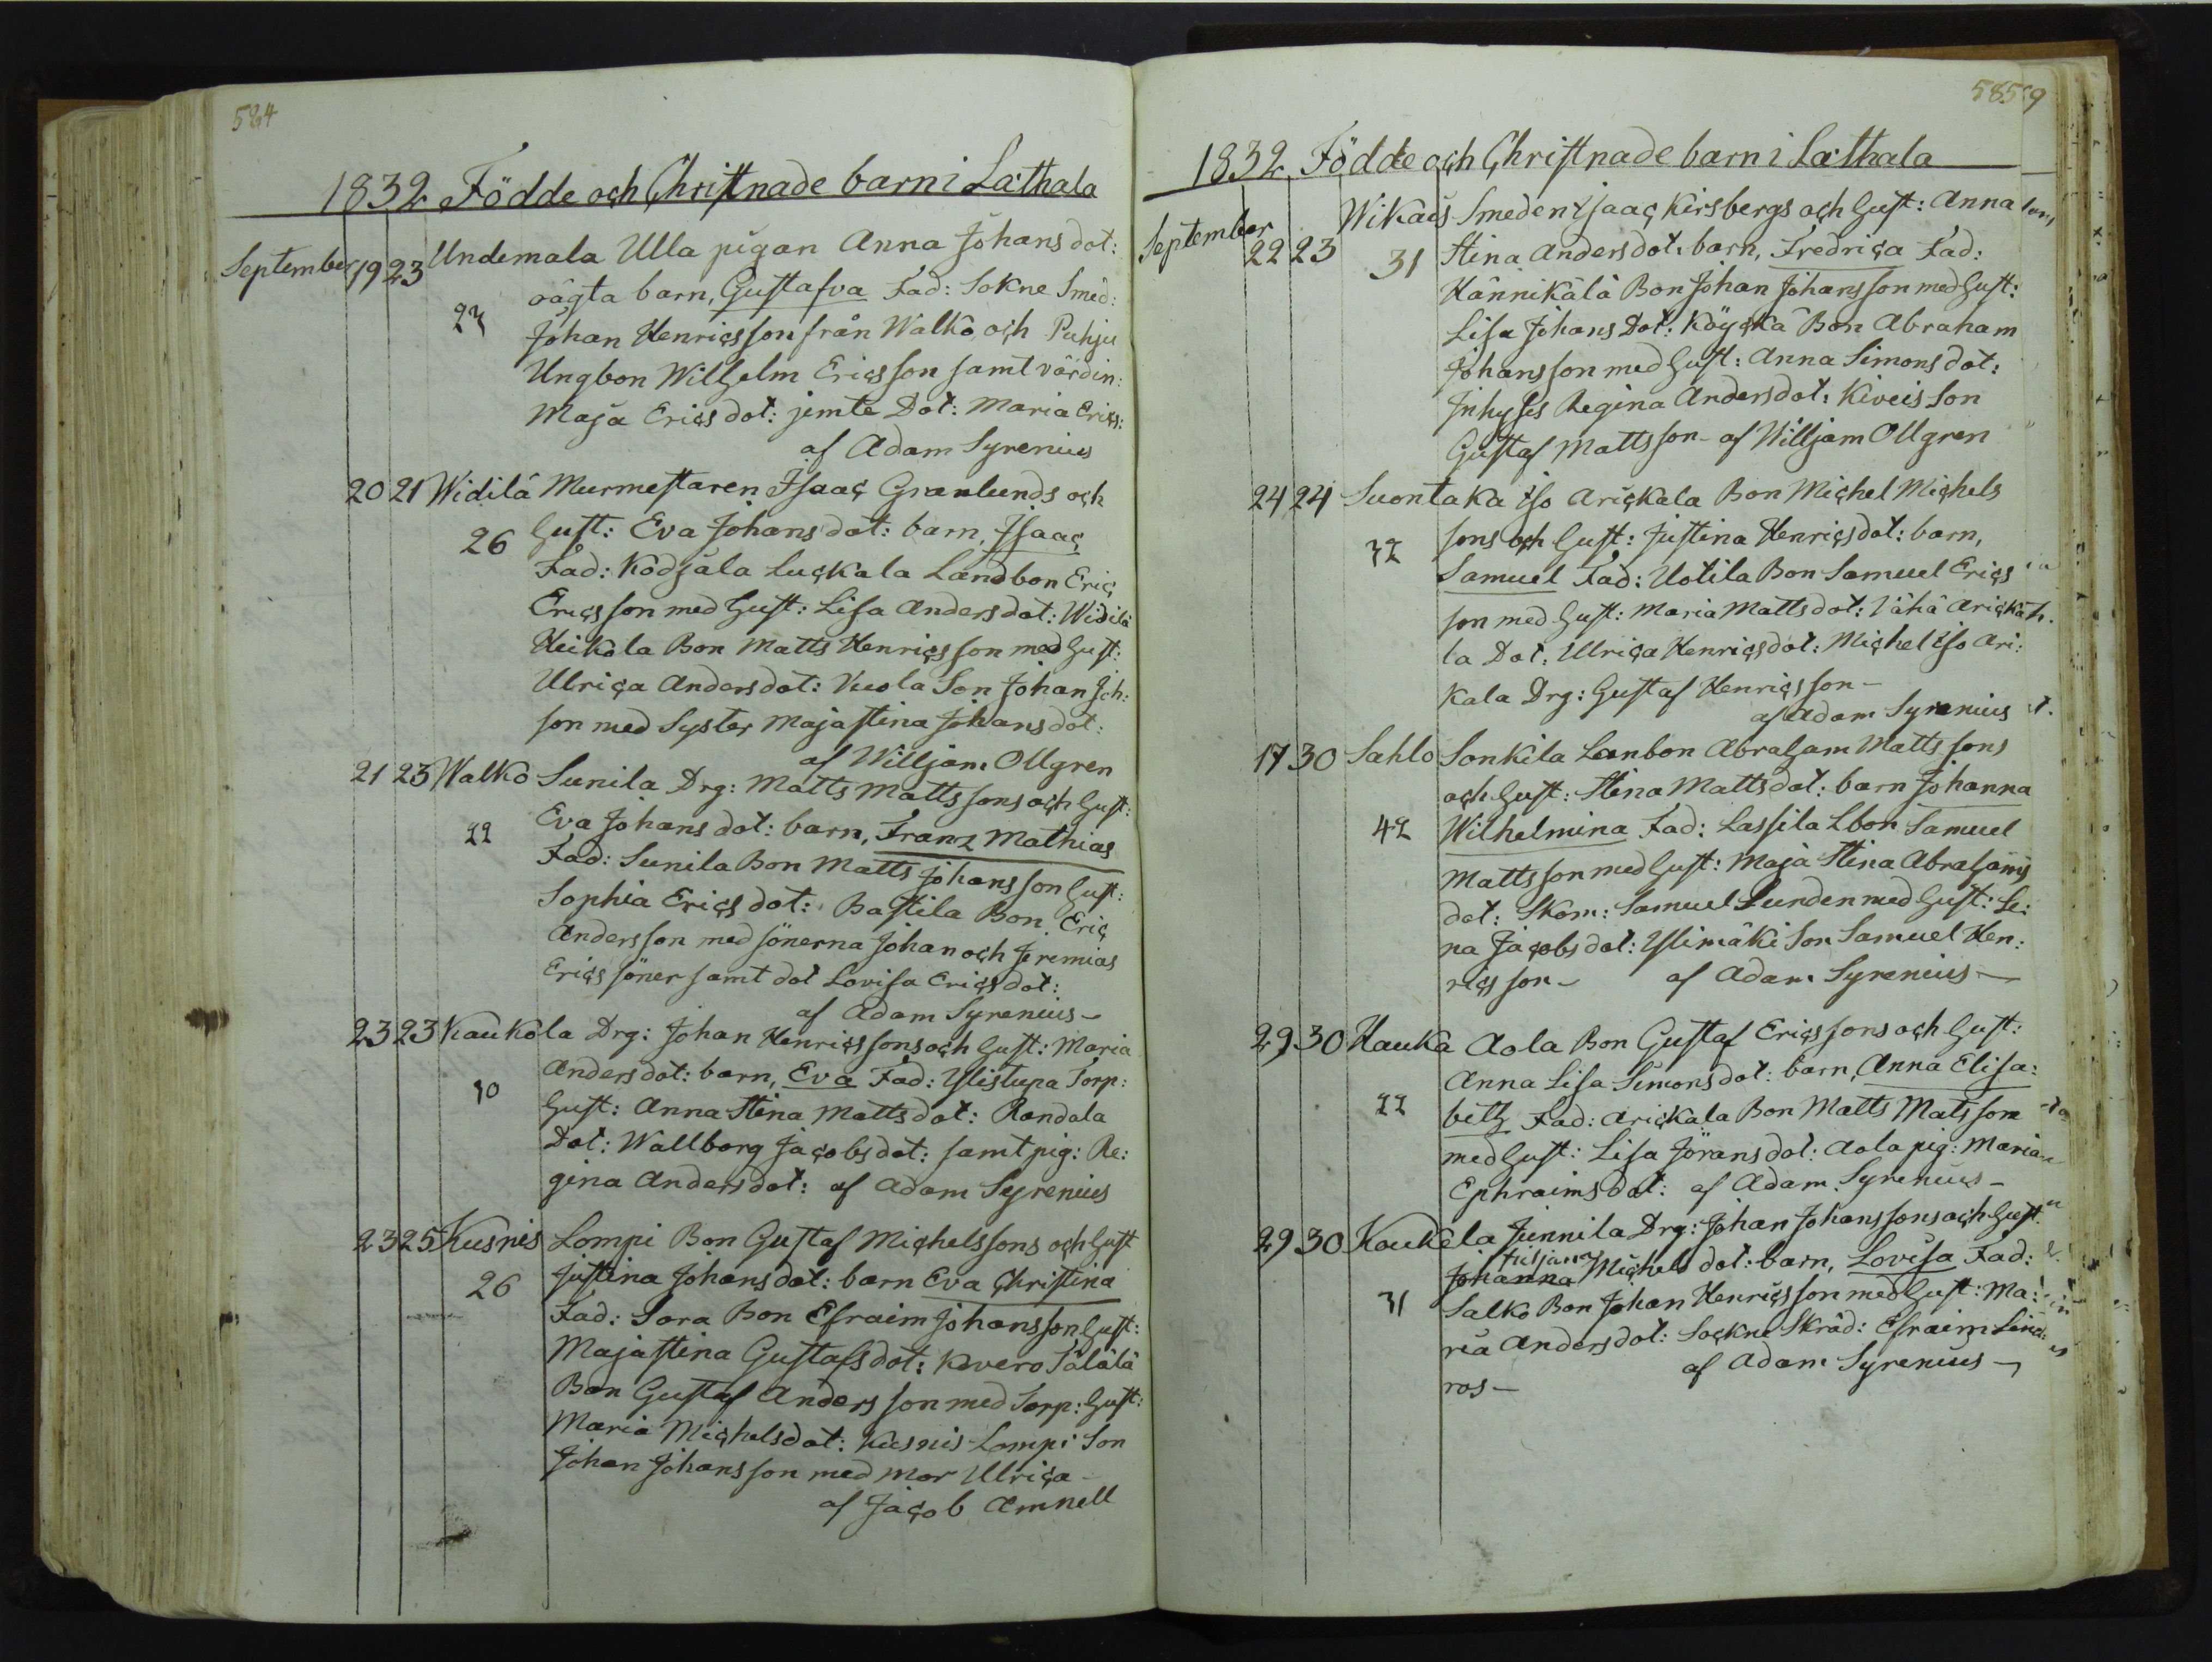 584
1832 Födde och Christnade barn i Laithala
September 19 23 Undemala Ulla pigan Anna Johans dot:
oägta barn, Gustafva Fad: Sokne Smed:
23
Johan Henricsson från Walko och Puhju
Ungbon Wilhelm Ericsson samt värdin:
Maja Erics dot: jemte Dot: Maria Erics:
af Adam Syrenius
20 21 Widilä Murmestaren Isaac Granlunds och
26 Hust: Eva Johans dot: barn, Isaac
Fad: Kodjala Luckala Landbon Eric
Ericsson med Hust: Lisa Anders dot: Widilä
Heikola Bon Matts Henricsson med Hust:
Ulrica Anders dot: Vuola Son Johan Joh:
son med Syster Maja Stina Johans dot:
af Willjam Ollgren
21 23 Walko Sunila Drg: Matts Mattssons och Hust:
22 Eva Johans dot: barn, Franz Mathias
Fad: Sunila Bon Matts Johansson Hust:
Sophia Erics dot: Bastila Bon Eric
Andersson med sönerna Johan och Jeremias
Erics söner samt dot Lovisa Erics dot:
af Adam Syrenius
23 23 Kaukola Drg: Johan Henricssons och Hust: Maria
Anders dot: barn, Eva Fad: Ylistupa Torp:
30 Hust: Anna Stina Matts dot: Randala
Dot: Wallborg Jacobs dot: samt pig: Re:
gina Anders dot: af Adam Syrenius
23 25 Kusnis Lompi Bon Gustaf Michelssons och Hust
26 Justina Johans dot: barn Eva Christina
Fad: Sora Bon Efraim Johansson Hust:
Maja Stina Gustafs dot: Kovero Tälälä
Bon Gustaf Andersson med Torp: Hust:
Maria Michels dot: Kusnis Lompi Son
Johan Johansson med mor Ulrica
af Jacob Amnell
585
1832 Födde och Christnade barn i Laithala
September 22 23 Wikais Smeden Isaac Kirsbergs och Hust: Anna
31 Stina Anders dot: barn, Fredrica Fad:
Männikälä Bon Johan Johansson med Hust:
Lisa Johans Dot: Köyckä Bon Abraham
Johansson med Hust: Anna Simons dot:
Inhyses Regina Anders dot: Kiveis Son
Gustaf Mattsson af Willjam Ollgren
24 24 Suontaka Iso Arickala Bon Michel Michels
32 sons och Hust: Justina Henrics dot: barn,
Samuel Fad: Uotila Bon Samuel Erics
son med Hust: Maria Matts dot: Vähä Aricka
la Dot: Ulrica Henrics dot: Michel Iso Ari:
kala Drg: Gustaf Henricsson
af Adam Syrenius
17 30 Sahlo Sonkila Lanbon Abraham Mattssons
och Hust: Stina Matts dot: barn Johanna
42 Wilhelmina Fad: Lassila Lbon Samuel
Mattsson med Hust: Maja Stina Abrahams
dot: Skom: Samuel Lunden med Hust: Le:
na Jacobs dot: Ylimäki Son Samuel Hen:
ricsson af Adam Syrenius
29 30 Hauka Aola Bon Gustaf Ericssons och Hust:
Anna Lisa Simons dot: barn, Anna Elisa:
22 beth Fad: Arickala Bon Matts Matsson
med Hust: Lisa Jörans dot: Aola pig: Maria
Ephraims dot: af Adam Syrenius
29 30 Koukela Junnila Drg: Johan Johanssons och Hust:
Juljana
31 Johanna Michels dot: barn, Lovisa Fad:
Salko Bon Johan Henricsson med Hust: Ma:
ria Anders dot: Sockne Skräd: Efraim Lind:
ros af Adam Syrenius